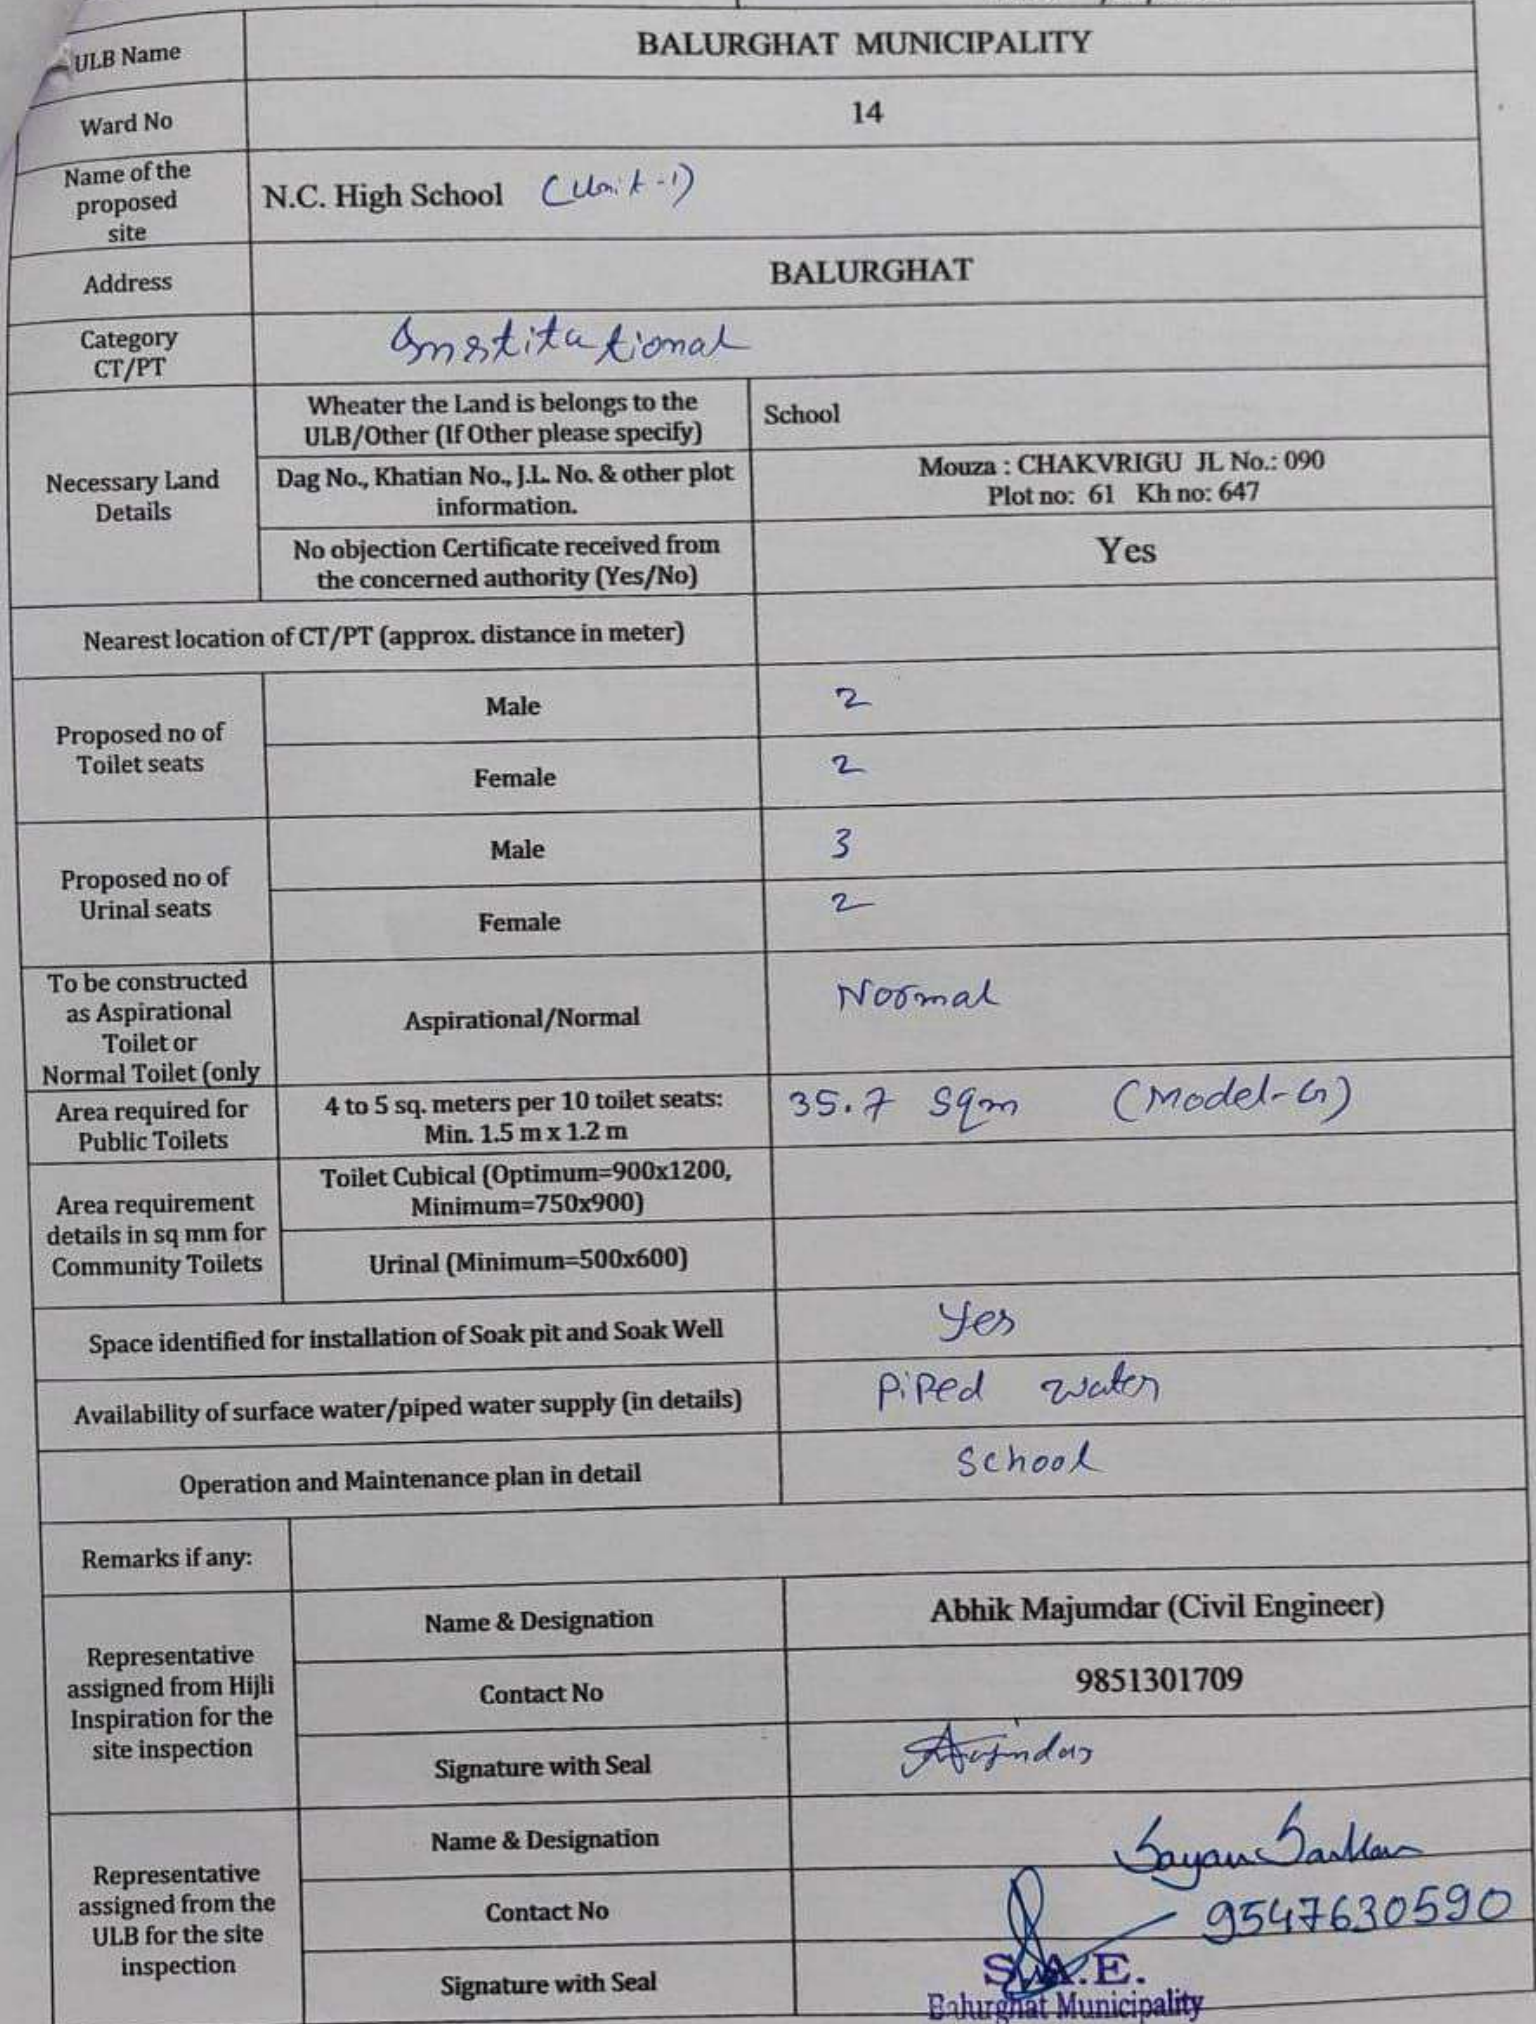 ULB Name
BALURGHAT MUNICIPALITY
Ward No
14
Name of the
proposed
site
N.C. High School (Unit-1)
Address
BALURGHAT
Category
CT/PT
Institutional
Necessary Land
Details
Wheater the Land is belongs to the
ULB/Other (If Other please specify)
School
Dag No., Khatian No., J.L. No. & other plot
information.
Mouza : CHAKVRIGU JL No.: 090
Plot no: 61 Kh no: 647
No objection Certificate received from
the concerned authority (Yes/No)
Yes
Nearest location of CT/PT (approx. distance in meter)
Proposed no of
Toilet seats
Male
2
Female
2
Proposed no of
Urinal seats
Male
3
Female
2
To be constructed
as Aspirational
Toilet or
Normal Toilet (only
Aspirational/Normal
Normal
Area required for
Public Toilets
4 to 5 sq. meters per 10 toilet seats:
Min. 1.5 m x 1.2 m
35.7 Sqm (Model-G)
Area requirement
details in sq mm for
Community Toilets
Toilet Cubical (Optimum=900x1200,
Minimum=750x900)
Urinal (Minimum=500x600)
Space identified for installation of Soak pit and Soak Well
Yes
Availability of surface water/piped water supply (in details)
Piped water
Operation and Maintenance plan in detail
School
Remarks if any:
Representative
assigned from Hijli
Inspiration for the
site inspection
Name & Designation
Abhik Majumdar (Civil Engineer)
Contact No
9851301709
Signature with Seal
Representative
assigned from the
ULB for the site
inspection
Name & Designation
Sayan Sarkar
Contact No
9547630590
Signature with Seal
S.A.E.
Balurghat Municipality